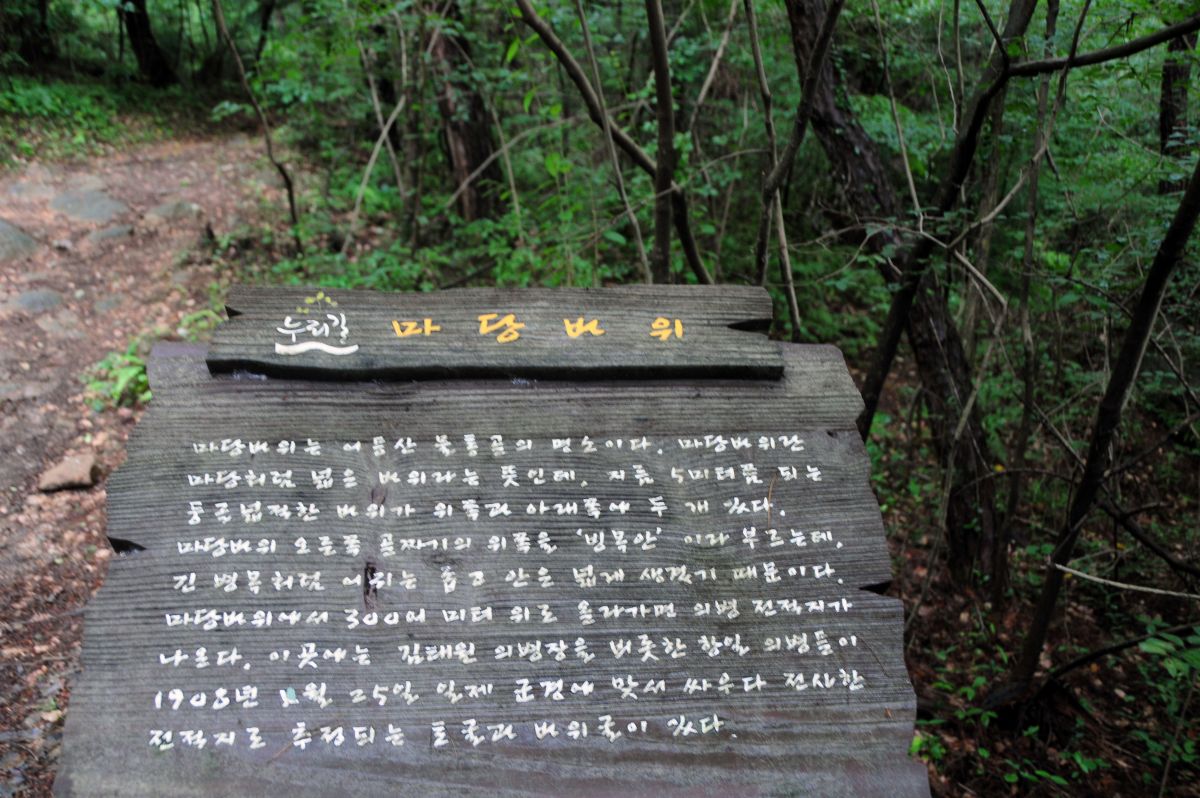 누리길 마당바위
마당바위는 어등산 북동골의 명소이다. 마당바위란
마당처럼 넓은 바위라는 뜻인데, 지름 5미터쯤 되는
둥글넙적한 바위가 위쪽과 아래쪽에 두 개 있다.
마당바위 오른쪽 골짜기의 위쪽을 '병목안' 이라 부르는데,
긴 병목처럼 어귀는 좁고 안은 넓게 생겼기 때문이다.
마당바위에서 300여 미터 위로 올라가면 의병 전적지가
나온다. 이곳에는 김태원 의병장을 비롯한 항일 의병들이
1908년 월 25일 일제 군경에 맞서 싸우다 전사한
전적지로 추정되는 토굴과 바위굴이 있다.